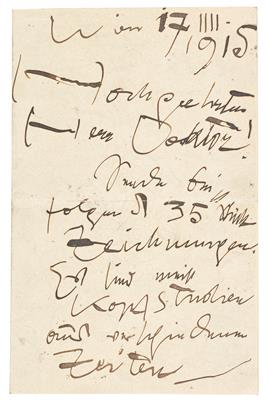 Wien 17 IIII.
1915
Hochgeehrter
Herr Doktor!
Sende bei
folgend 35 Stück
Zeichnungen.
Es sind meist
Kopfstudien
aus verschiedenen
Zeiten